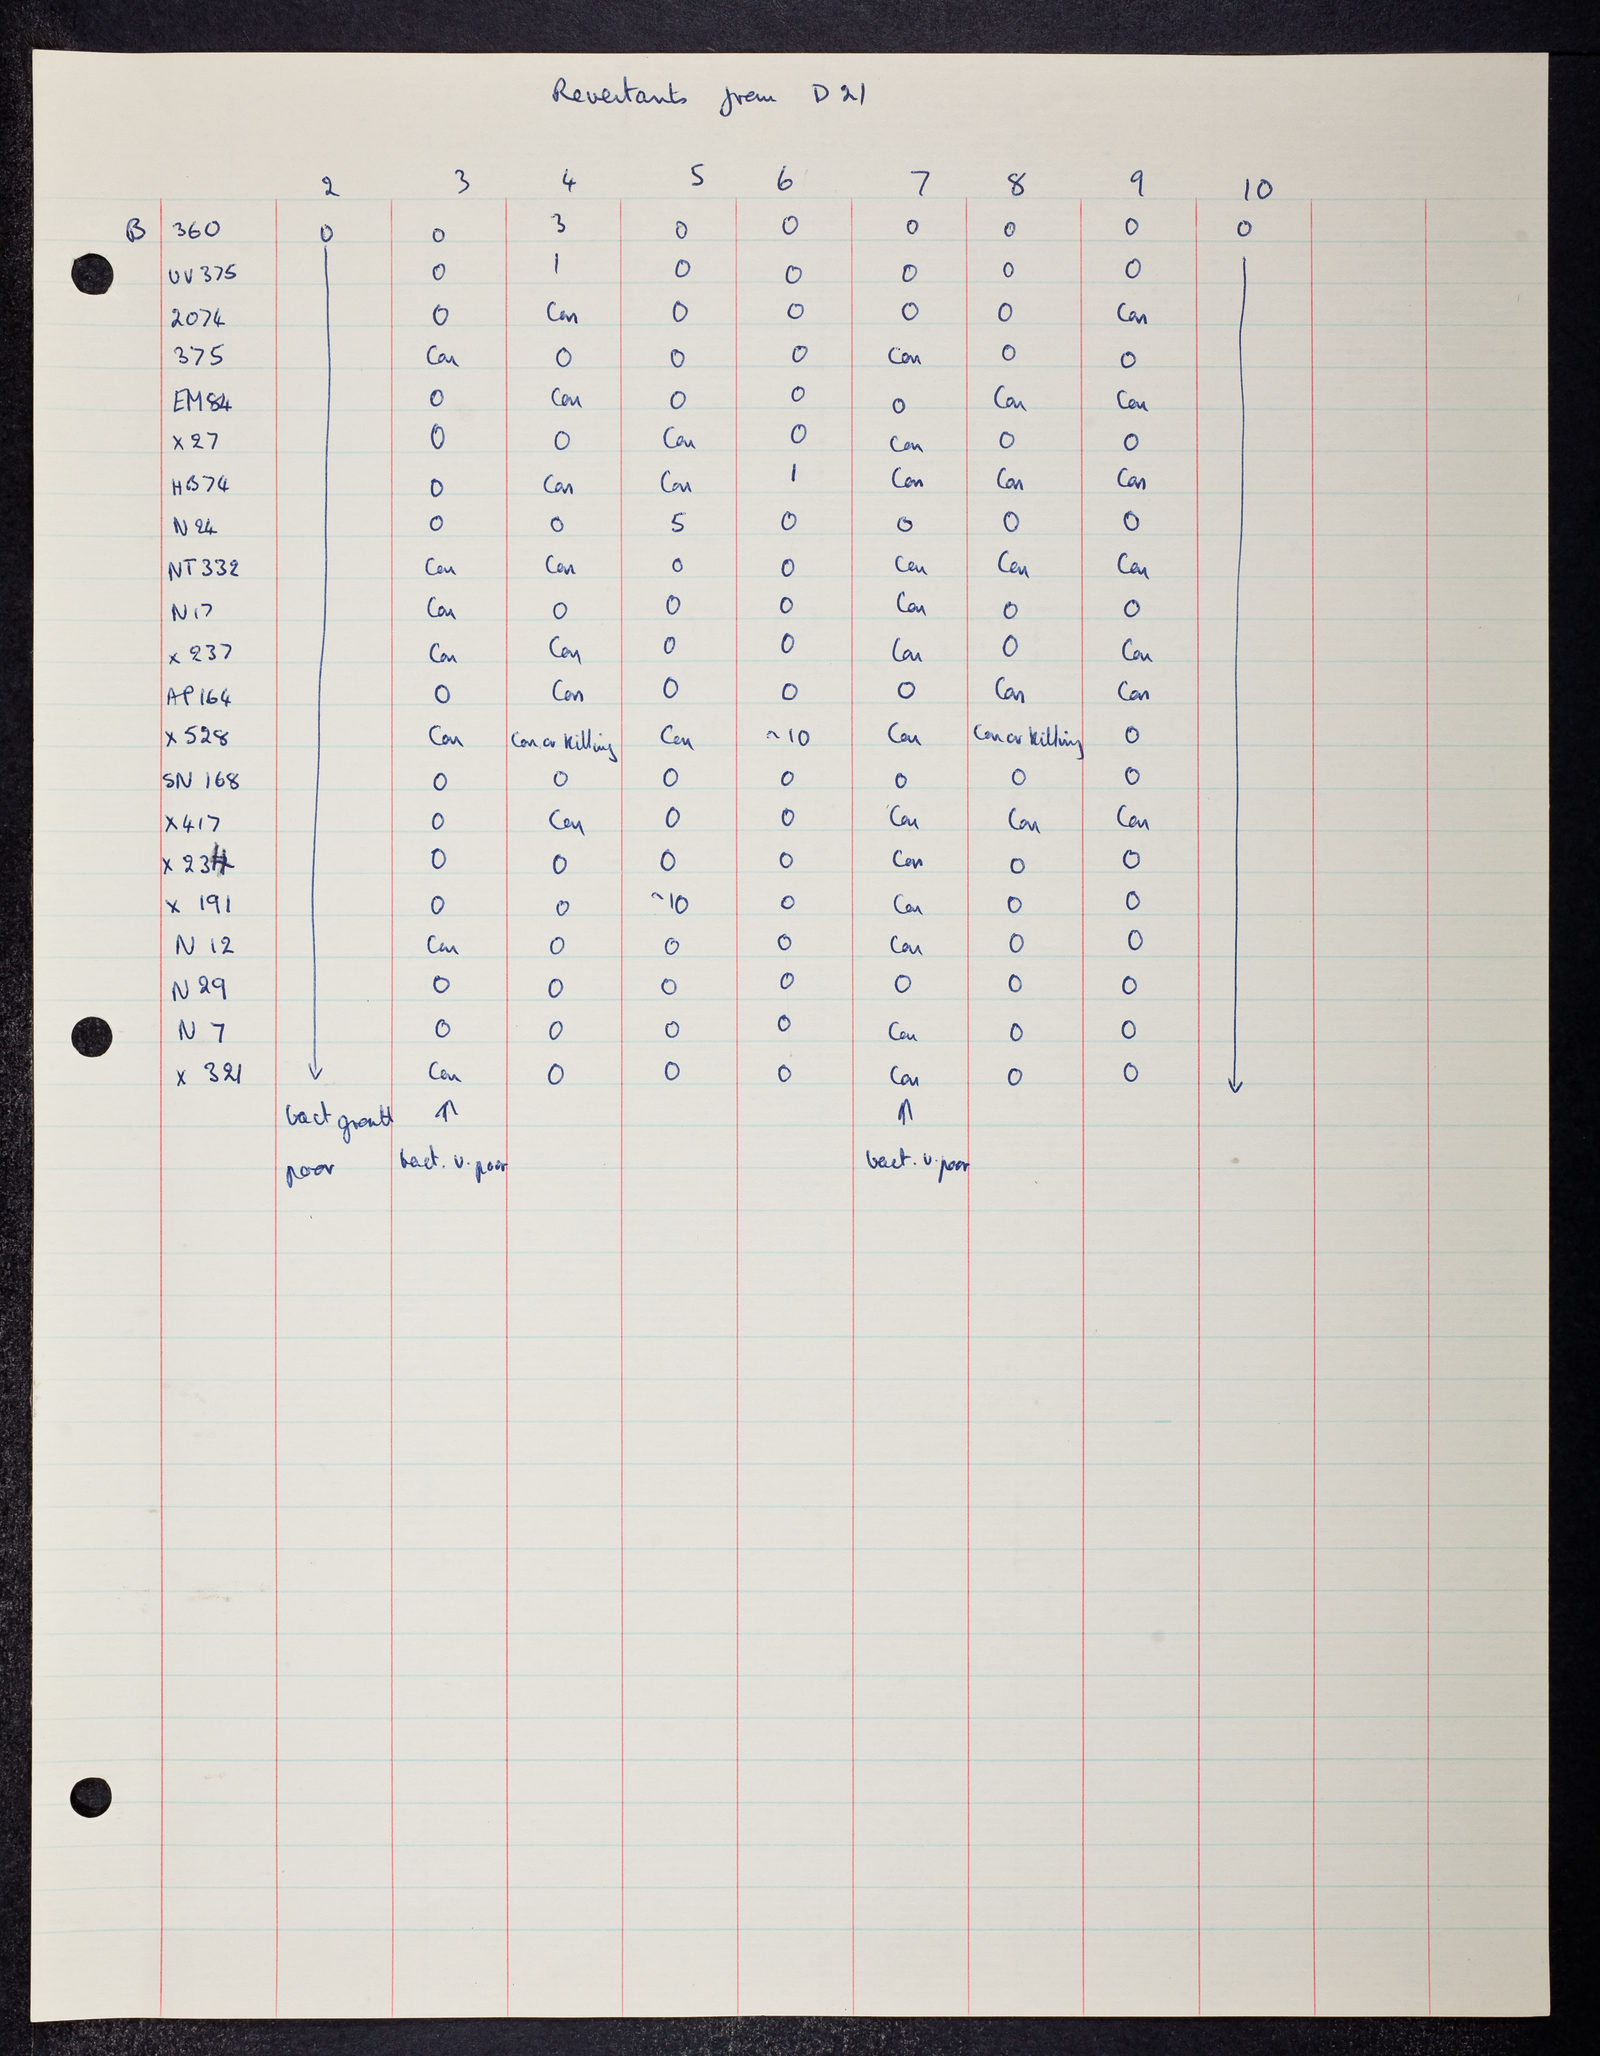 Revertants from D 21
2 3 4 5 6 7 8 9 10
B 360 0 0 3 0 0 0 0 0 0
UV 375 0 1 0 0 0 0 0
2074 0 Con 0 0 0 0 Con
375 Con 0 0 0 Con 0 0
EM84 0 Con 0 0 0 Con Con
X 27 0 0 Con 0 Con 0 0
HB74 0 Con Con 1 Con Con Con
N 24 0 0 5 0 0 0 0
NT 332 Con Con 0 0 Con Con Con
N17 Con 0 0 0 Con 0 0
X 237 Con Con 0 0 Con 0 Con
AP164 0 Con 0 0 0 Con Con
X 528 Con Con or killing Con ~10 Con Con or killing 0
SN 168 0 0 0 0 0 0 0
X417 0 Con 0 0 Con Con Con
X 234 0 0 0 0 Con 0 0
X 191 0 0 ~10 0 Con 0 0
N 12 Con 0 0 0 Con 0 0
N 29 0 0 0 0 0 0 0
N 7 0 0 0 0 Con 0 0
X 321 Con 0 0 0 Con 0 0
bact growth ↑ ↑
poor bact. v. poor bact. v. poor